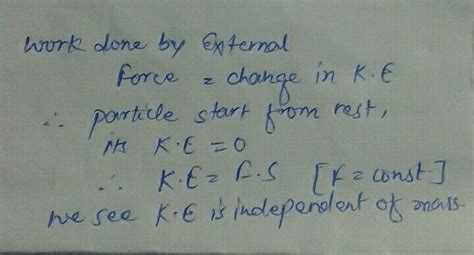 work done by External
Force = change in K.E
∴ particle start from rest,
its K.E = 0
∴ K.E = F.S [F = const.]
we see K.E is independent of mass.